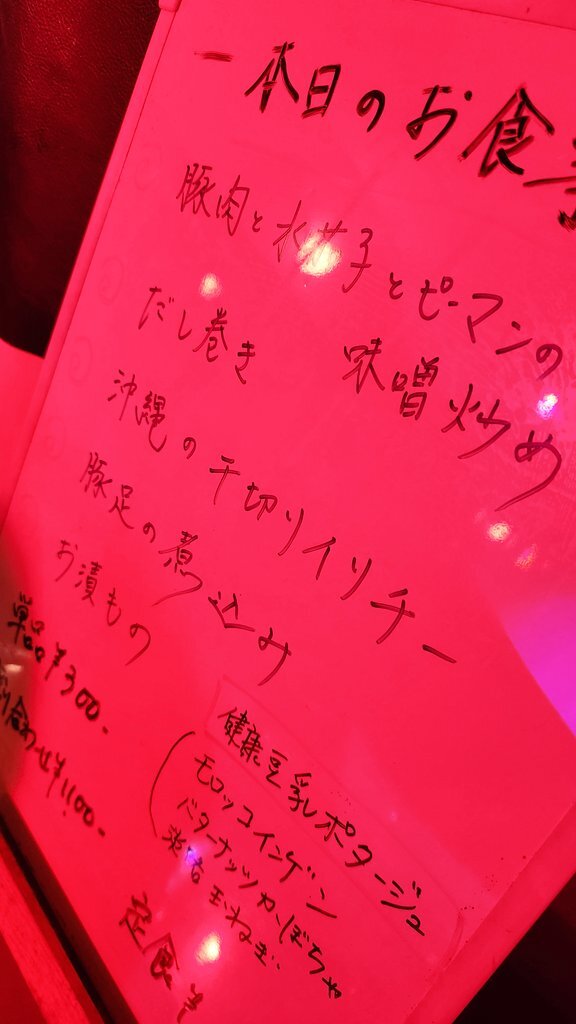 一本日のお食事
豚肉と水茄子とピーマンの
味噌炒め
だし巻き
沖縄の千切りイリチー
豚足の煮込み
お漬もの
単品¥300-
合わせ¥1100-
健康豆乳ポタージュ
(モロッコインゲン
バターナッツかぼちゃ
淡路玉ねぎ
定食¥